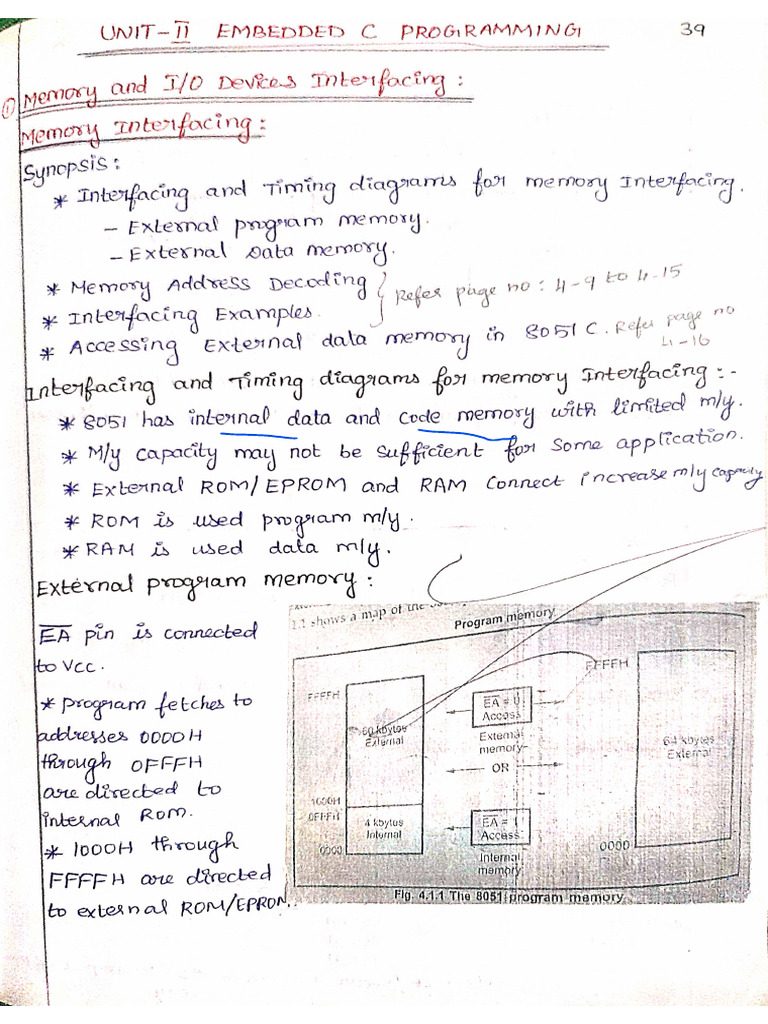 UNIT-II EMBEDDED C PROGRAMMING 39
① Memory and I/O Devices Interfacing:
Memory Interfacing:
Synopsis:
* Interfacing and Timing diagrams for memory Interfacing.
- External program memory.
- External Data memory.
* Memory Address Decoding
* Interfacing Examples.
} Refer page no: 4-9 to 4-15
* Accessing External data memory in 8051 C. Refer page no 4-16
Interfacing and Timing diagrams for memory Interfacing:-
* 8051 has internal data and code memory with limited m/y.
* M/y capacity may not be sufficient for some application.
* External ROM/EPROM and RAM connect increase m/y capacity
* ROM is used program m/y.
* RAM is used data m/y.
External program memory:
E̅A̅ pin is connected
to Vcc.
* Program fetches to
addresses 0000H
through 0FFFH
are directed to
internal ROM.
* 1000H through
FFFFH are directed
to external ROM/EPROM.
1.1 shows a map of the
Program memory
FFFFH
60 kbytes
External
1000H
0FFFH
4 kbytes
Internal
0000
E̅A̅ = 0
Access
External
memory
OR
E̅A̅ = 1
Access
Internal
memory
FFFFH
64 kbytes
External
0000
Fig. 4.1.1 The 8051 program memory